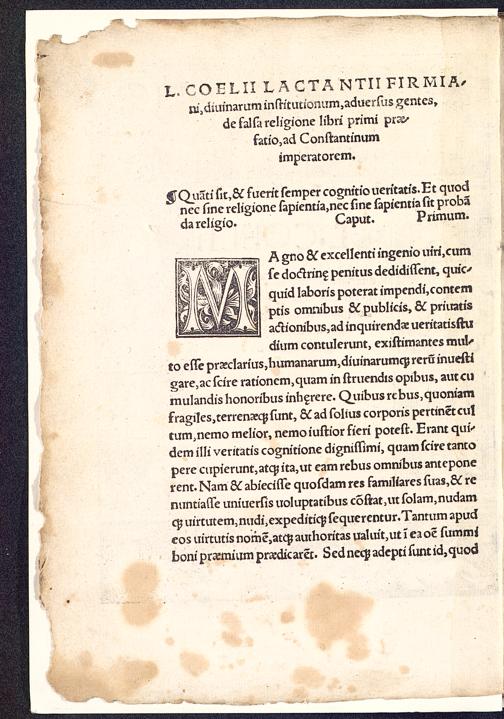 L. COELII LACTANTII FIRMIA-
ni, diuinarum institutionum, aduersus gentes,
de falsa religione libri primi præ-
fatio, ad Constantinum
imperatorem.
¶ Quãti sit, & fuerit semper cognitio ueritatis. Et quod
nec sine religione sapientia, nec sine sapientia sit probã
da religio. Caput. Primum.
MAgno & excellenti ingenio uiri, cum
se doctrinę penitus dedidissent, quic-
quid laboris poterat impendi, contem
ptis omnibus & publicis, & priuatis
actionibus, ad inquirendæ ueritatis stu
dium contulerunt, existimantes mul-
to esse præclarius, humanarum, diuinarumqꝫ rerũ inuesti
gare, ac scire rationem, quam in struendis opibus, aut cu
mulandis honoribus inhęrere. Quibus rebus, quoniam
fragiles, terrenæqꝫ sunt, & ad solius corporis pertinẽt cul
tum, nemo melior, nemo iustior fieri potest. Erant qui-
dem illi veritatis cognitione dignissimi, quam scire tanto
pere cupierunt, atqꝫ ita, ut eam rebus omnibus antepone
rent. Nam & abiecisse quosdam res familiares suas, & re
nuntiasse uniuersis uoluptatibus cõstat, ut solam, nudam
qꝫ uirtutem, nudi, expeditiqꝫ sequerentur. Tantum apud
eos uirtutis nomẽ, atqꝫ authoritas ualuit, ut ĩ ea oẽ summi
boni præmium prædicarẽt. Sed neqꝫ adepti sunt id, quod